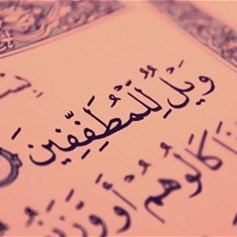 بِسْ
وَيْلٌ لِّلْمُطَفِّفِينَ
كَالُوهُمْ أَو وَّزَنُ